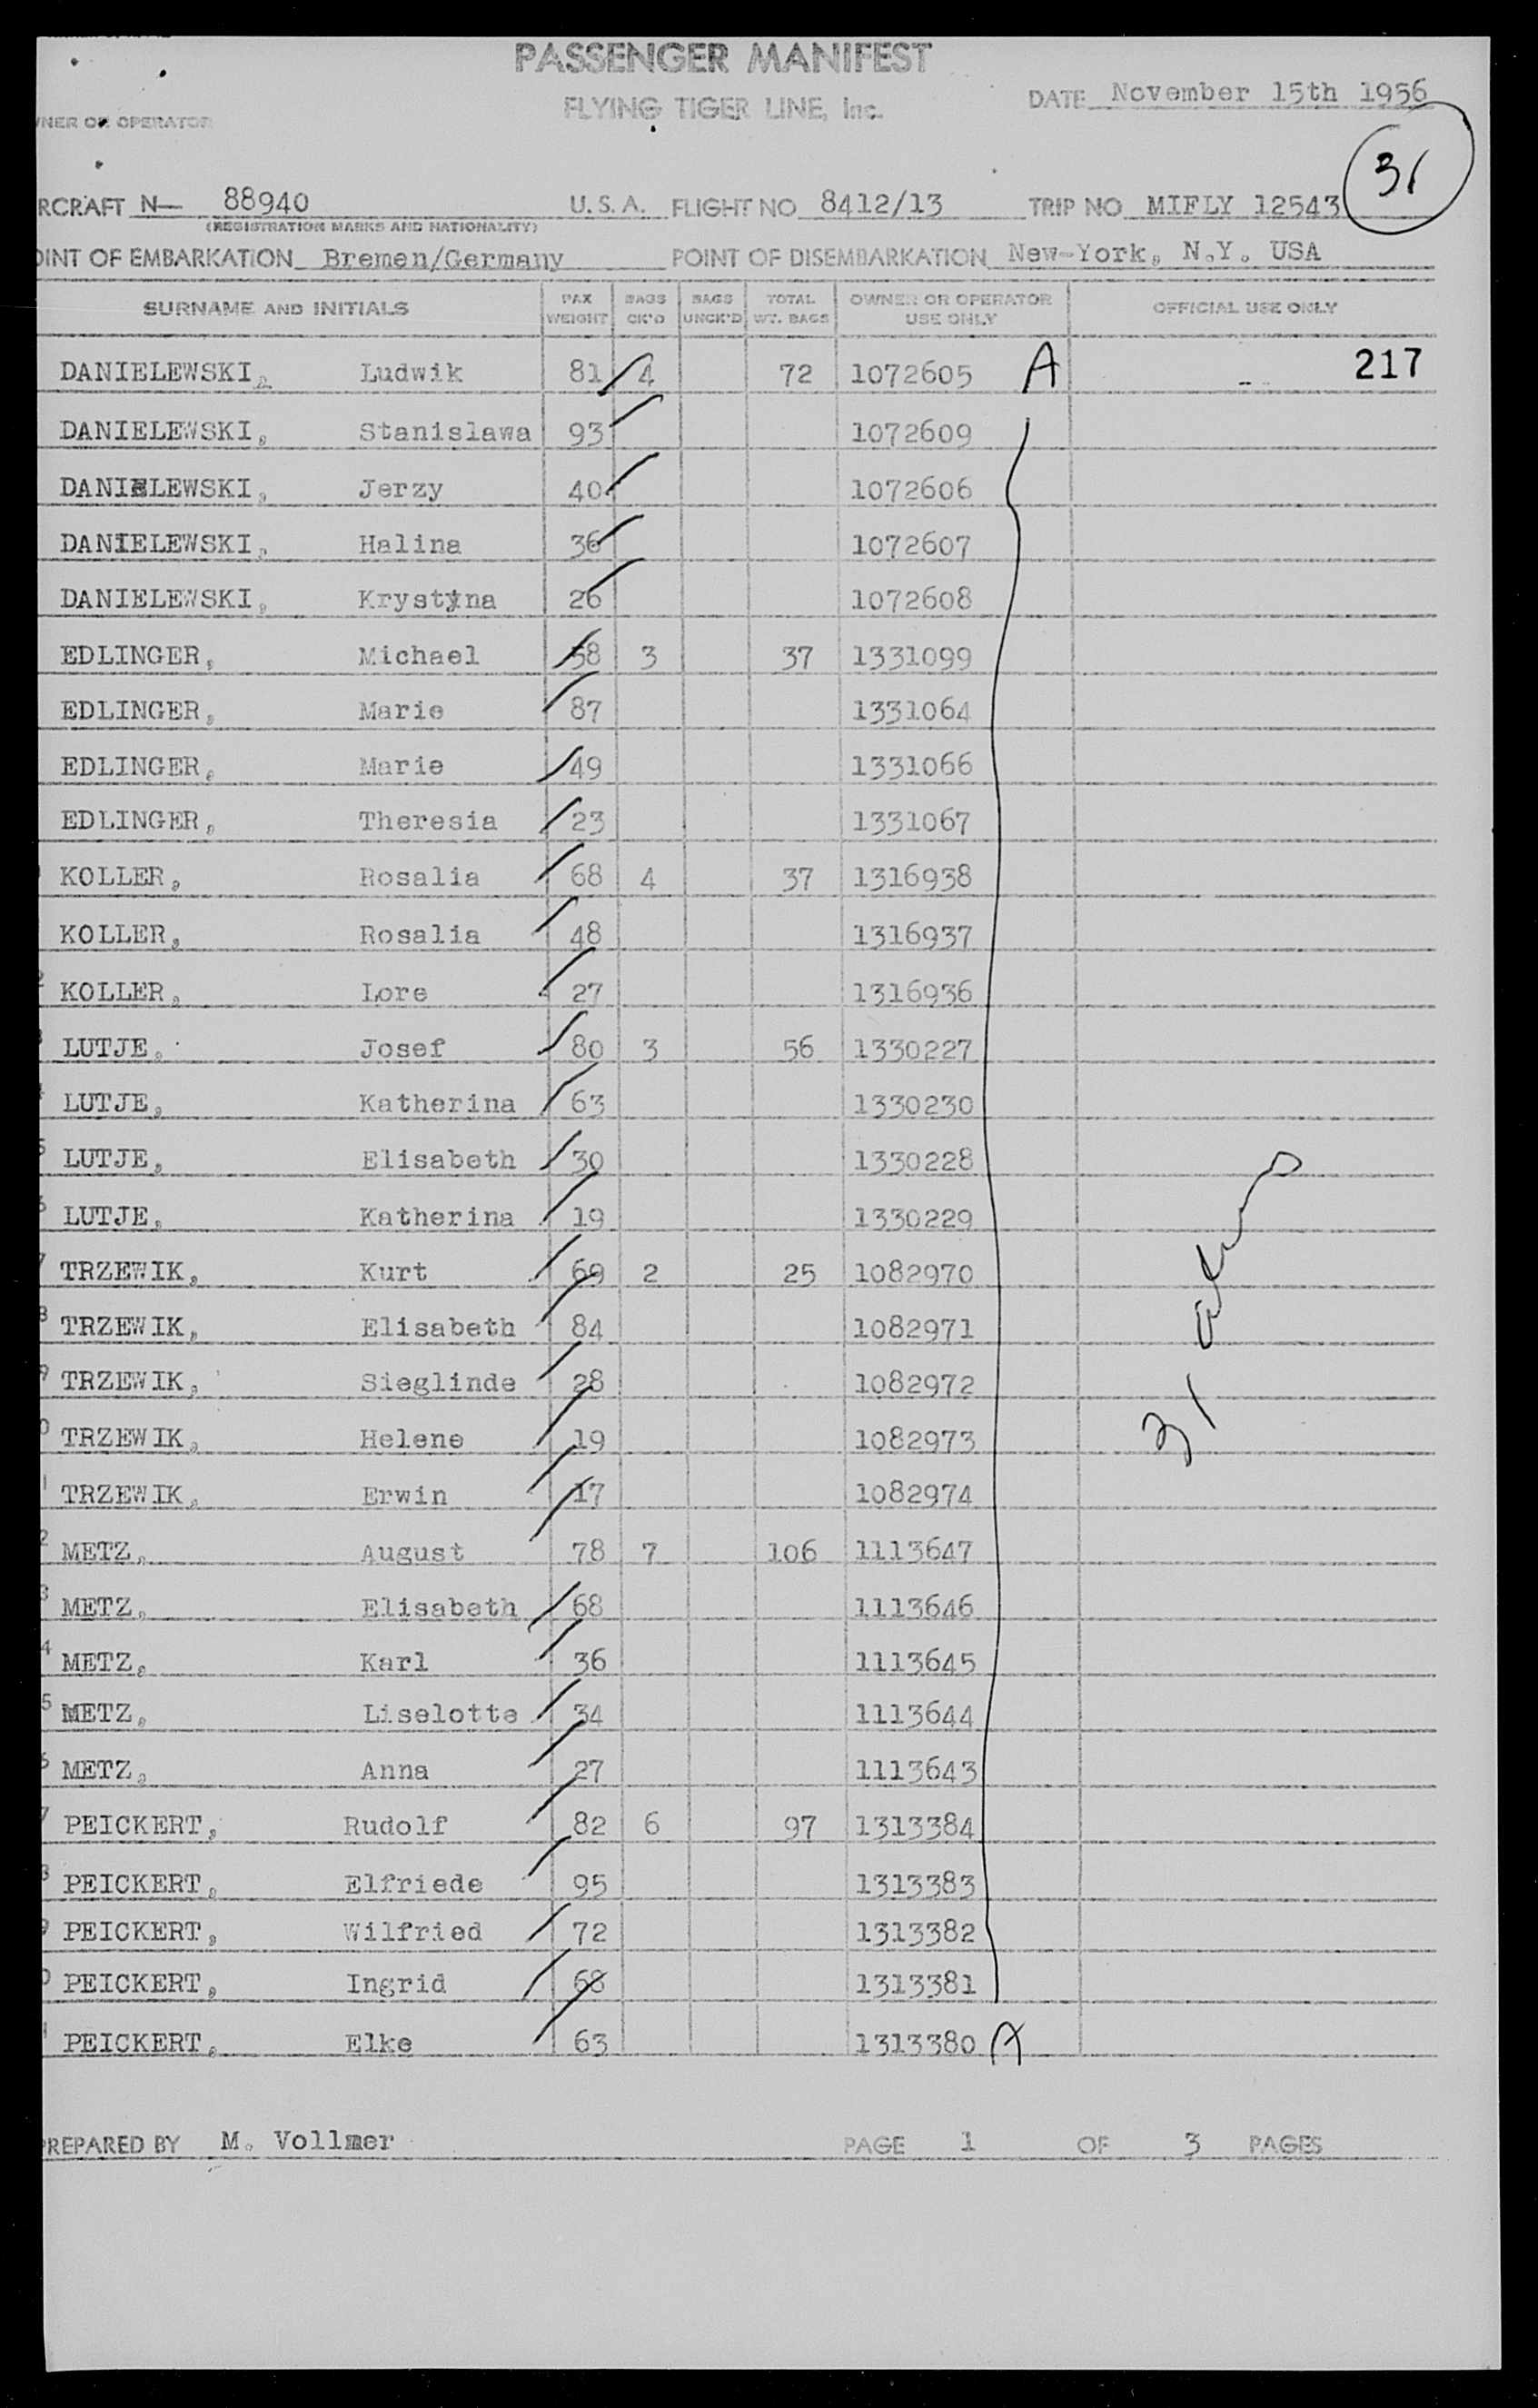 PASSENGER MANIFEST
FLYING TIGER LINE, Inc.
DATE November 15th 1956
WNER OR OPERATOR
31
RCRAFT N— 88940 U.S.A. FLIGHT NO 8412/13 TRIP NO MIFLY 12543
(REGISTRATION MARKS AND NATIONALITY)
OINT OF EMBARKATION Bremen/Germany POINT OF DISEMBARKATION New-York, N.Y. USA
SURNAME AND INITIALS PAX WEIGHT BAGS CK'D BAGS UNCK'D TOTAL WT. BAGS OWNER OR OPERATOR USE ONLY OFFICIAL USE ONLY
DANIELEWSKI, Ludwik 81 4 72 1072605 A 217
DANIELEWSKI, Stanislawa 93 1072609
DANIELEWSKI, Jerzy 40 1072606
DANIELEWSKI, Halina 36 1072607
DANIELEWSKI, Krystyna 26 1072608
EDLINGER, Michael 58 3 37 1331099
EDLINGER, Marie 87 1331064
EDLINGER, Marie 49 1331066
EDLINGER, Theresia 23 1331067
KOLLER, Rosalia 68 4 37 1316938
KOLLER, Rosalia 48 1316937
2 KOLLER, Lore 27 1316936
3 LUTJE, Josef 80 3 56 1330227
4 LUTJE, Katherina 63 1330230
5 LUTJE, Elisabeth 30 1330228
6 LUTJE, Katherina 19 1330229
7 TRZEWIK, Kurt 69 2 25 1082970
8 TRZEWIK, Elisabeth 84 1082971
9 TRZEWIK, Sieglinde 28 1082972
0 TRZEWIK, Helene 19 1082973
1 TRZEWIK, Erwin 17 1082974
2 METZ, August 78 7 106 1113647
3 METZ, Elisabeth 68 1113646
4 METZ, Karl 36 1113645
5 METZ, Liselotte 34 1113644
6 METZ, Anna 27 1113643
7 PEICKERT, Rudolf 82 6 97 1313384
8 PEICKERT, Elfriede 95 1313383
9 PEICKERT, Wilfried 72 1313382
0 PEICKERT, Ingrid 68 1313381
1 PEICKERT, Elke 63 1313380 A
31
PREPARED BY M. Vollmer PAGE 1 OF 3 PAGES